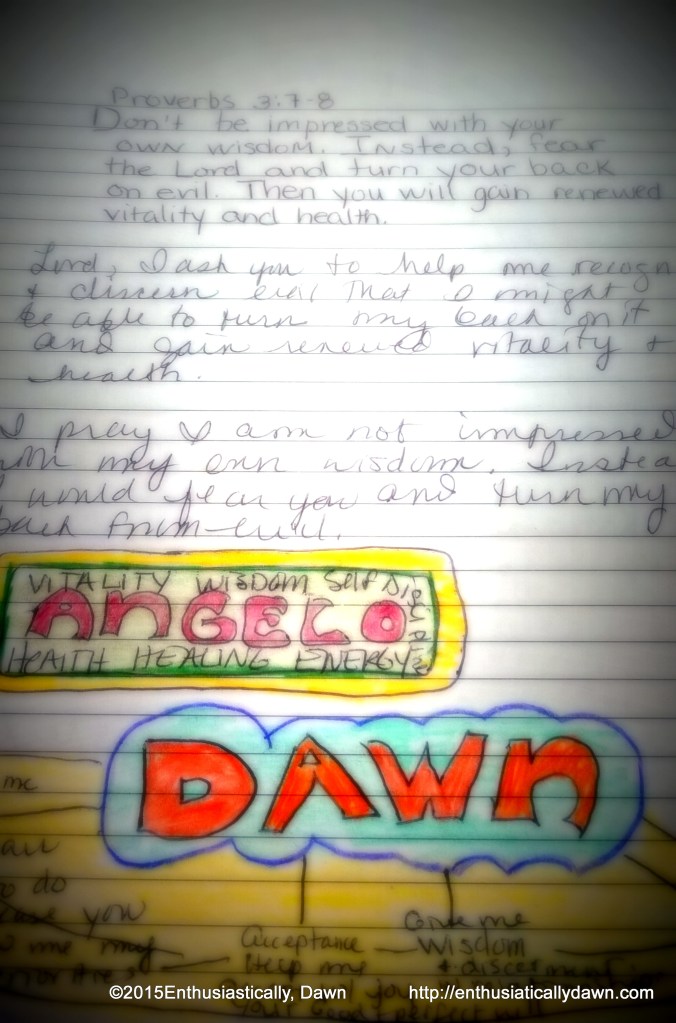 Proverbs 3:7-8
Don't be impressed with your
own wisdom. Instead, fear
the Lord and turn your back
on evil. Then you will gain renewed
vitality and health.
Lord, I ask you to help me recogn
+ discern evil that I might
be able to turn my back on it
and gain renewed vitality +
health.
I pray I am not impressed
my own wisdom. Instea
I would fear you and turn my
back from evil.
VITALITY WISDOM Self Discipline
ANGELO
HEALTH HEALING ENERGY
DAWN
me
do
you
me my
Acceptance
Help me
Give me
Wisdom
+ discernment
©2015Enthusiastically, Dawn
http://enthusiaticallydawn.com